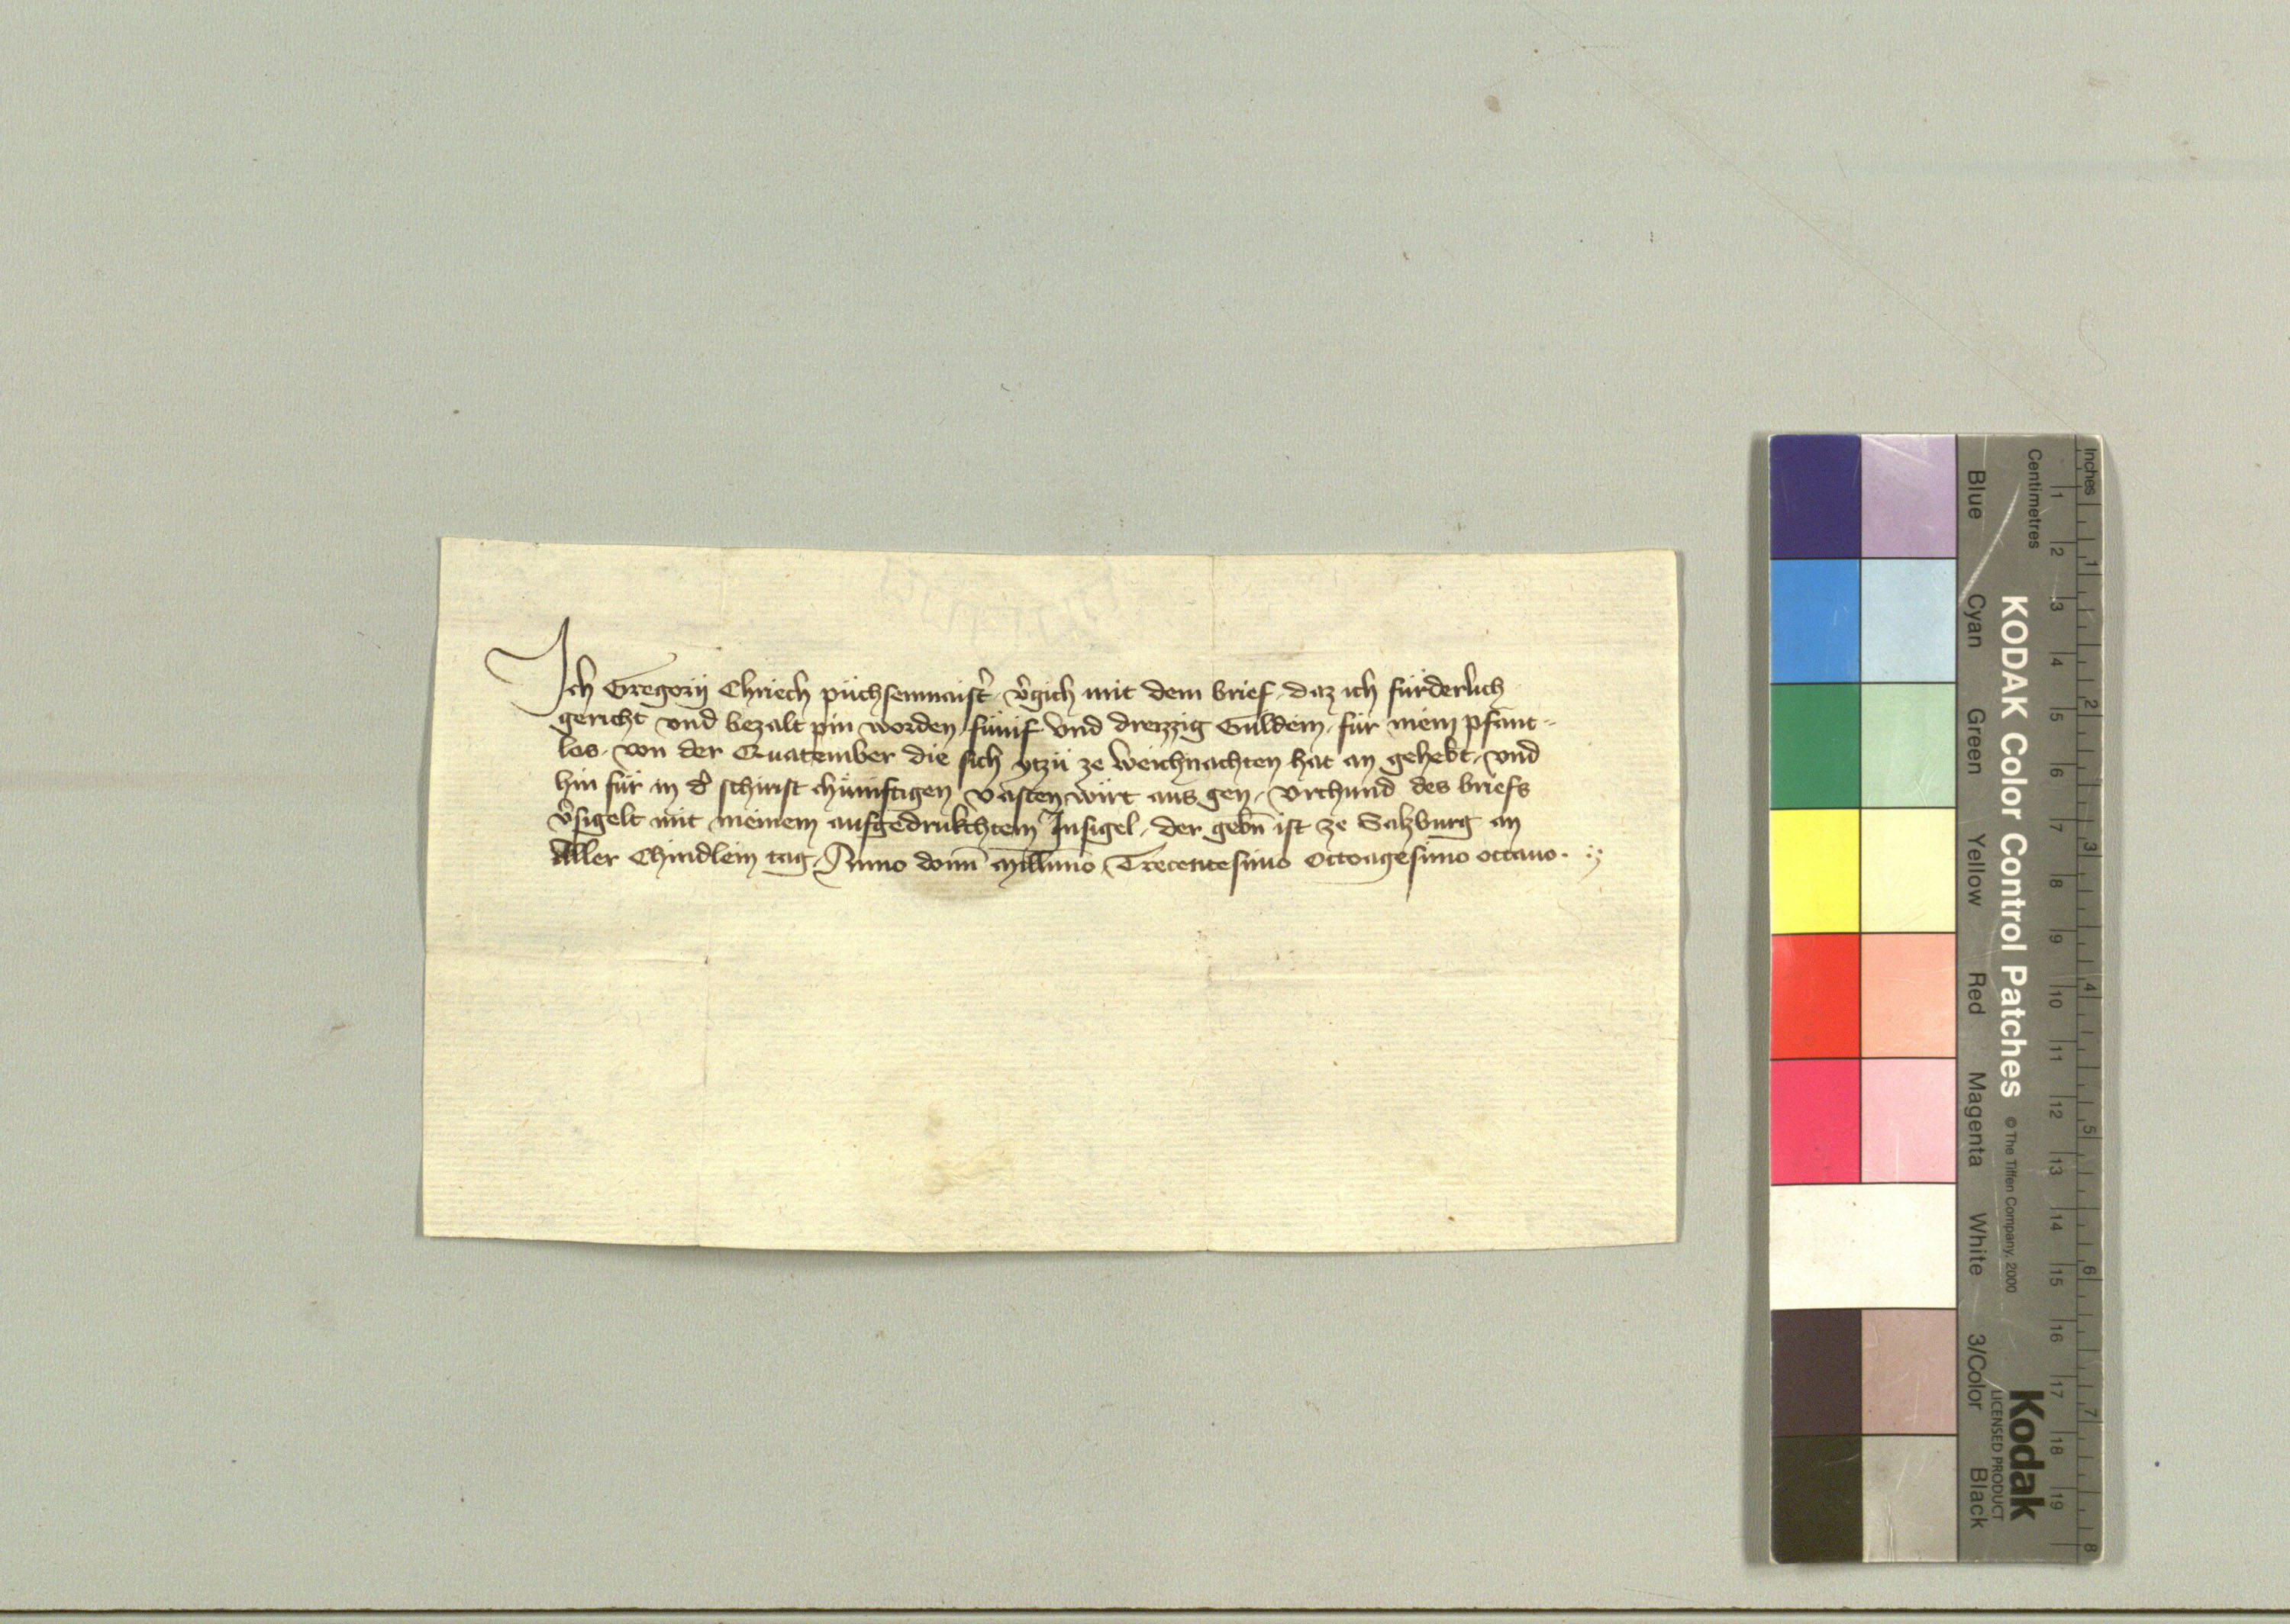 Ich Gregorij Chriech püchsenmaist̉ v̉gich mit dem brief, daz ich fürderlich
gericht vnd bezalt pin worden, fünif vnd dreizzig Guldein, für mein pfant-
los, von der Quatember die sich ytzü ze Weichnachten hat an gehebt, vnd
hin für in d̉ schirist chünftigen Vasten wirt aus gen, Vrchund des briefs
v̉sigelt mit meinem aufgedrukchtem Insigel, der gebn̄ ist ze Salzburg an
Aller Chindlein tag, Anno domī Mill̄imo Trecentesimo Octoagesimo octauo.
Inches
Centimetres
1 2 3 4 5 6 7 8
1 2 3 4 5 6 7 8 9 10 11 12 13 14 15 16 17 18 19
KODAK Color Control Patches © The Tiffen Company, 2000
Kodak
LICENSED PRODUCT
Blue Cyan Green Yellow Red Magenta White 3/Color Black